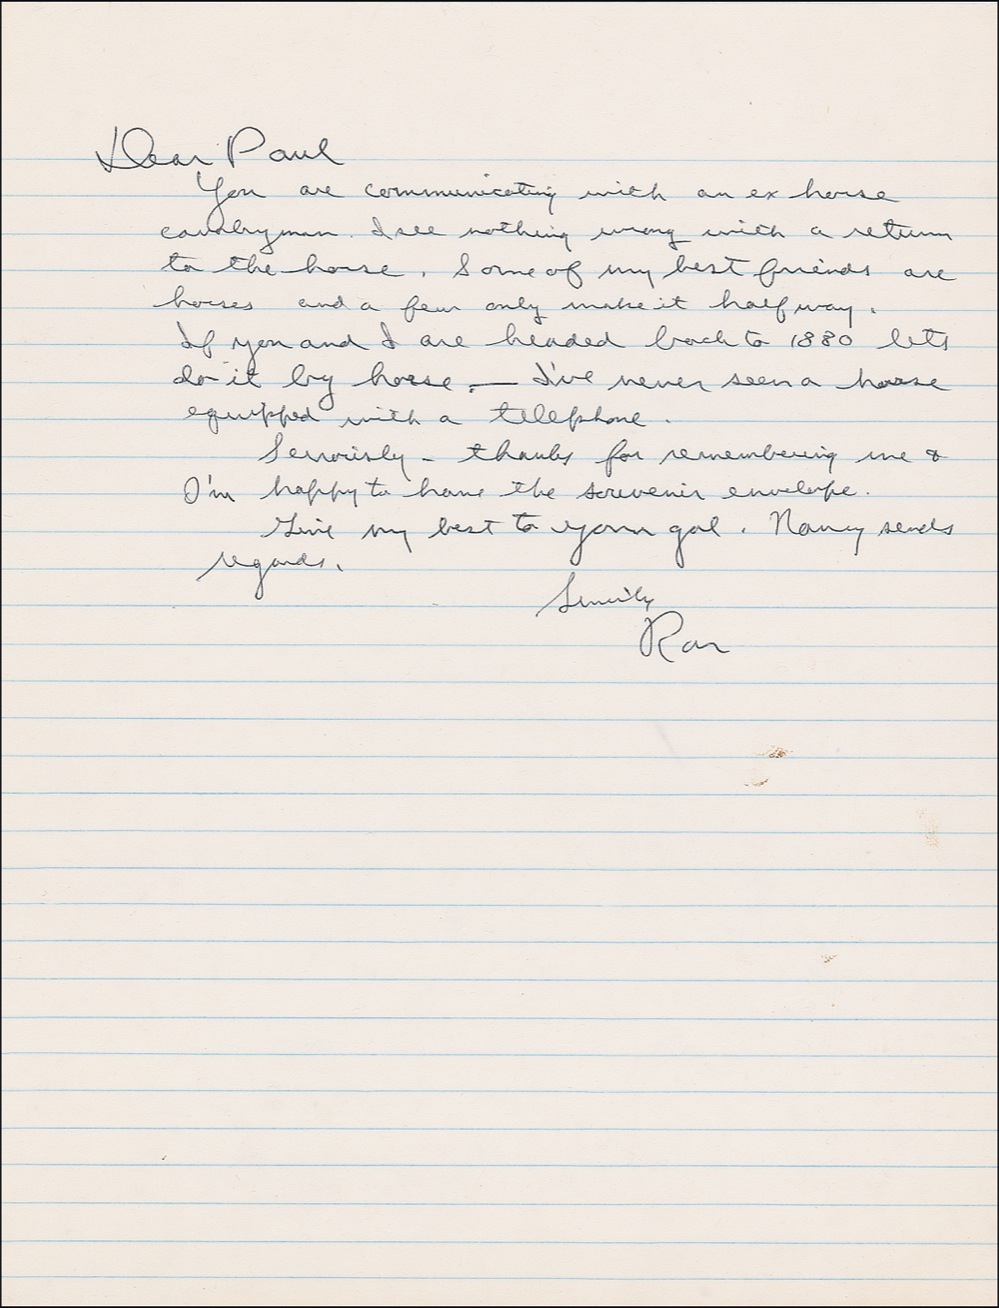 Dear Paul
You are communicating with an ex horse
cavalryman. I see nothing wrong with a return
to the horse. Some of my best friends are
horses and a few only make it half way.
If you and I are headed back to 1880 lets
do it by horse. — I've never seen a horse
equipped with a telephone.
Seriously - thanks for remembering me &
I'm happy to have the souvenir envelope.
Give my best to your gal. Nancy sends
regards.
Sincerely
Ron